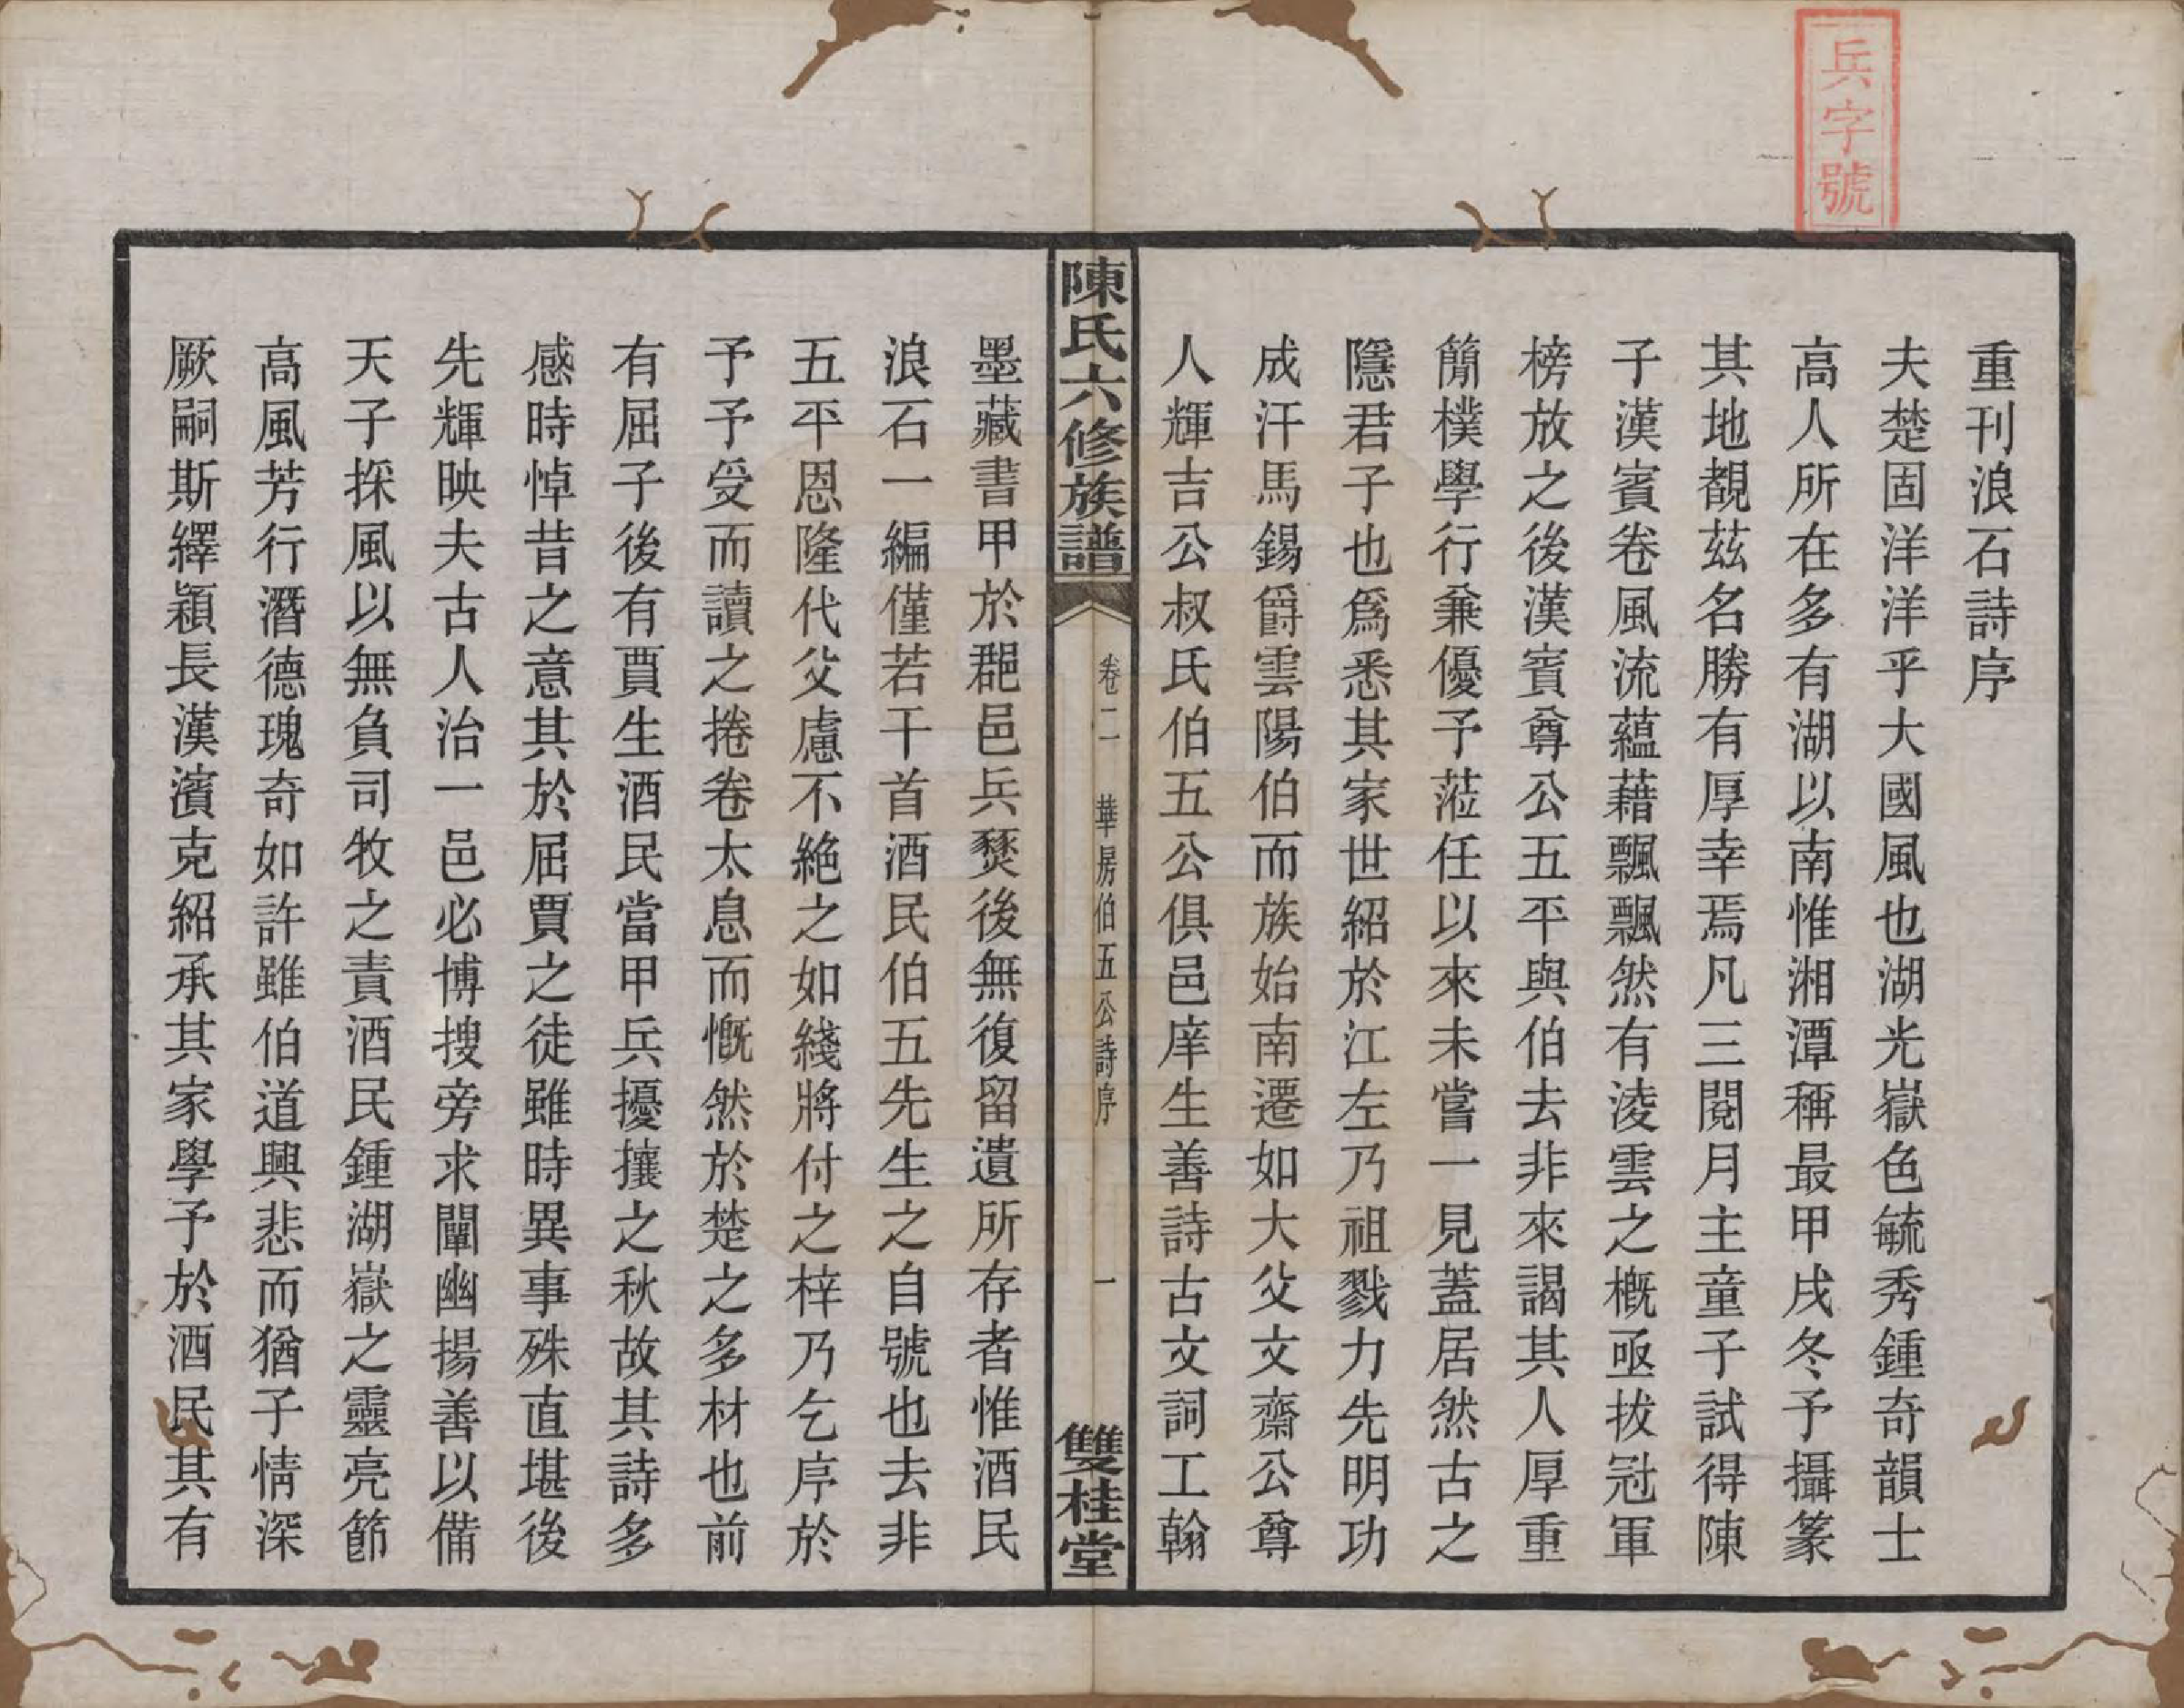 兵字號
重刊浪石詩序
夫楚固洋洋乎大國風也湖光嶽色毓秀鍾奇韻士
高人所在多有湖以南惟湘潭稱最甲戌冬予攝篆
其地覩茲名勝有厚幸焉凡三閱月主童子試得陳
子漢賓卷風流蘊藉飄飄然有淩雲之概亟拔冠軍
榜放之後漢賓尊公五平與伯去非來謁其人厚重
簡樸學行兼優予蒞任以來未嘗一見蓋居然古之
隱君子也爲悉其家世紹於江左乃祖戮力先明功
成汗馬錫爵雲陽伯而族始南遷如大父文齋公尊
人輝吉公叔氏伯五公俱邑庠生善詩古文詞工翰
陳氏六修族譜
卷二 華房伯五公詩序 一
雙桂堂
墨藏書甲於郡邑兵燹後無復留遺所存者惟酒民
浪石一編僅若干首酒民伯五先生之自號也去非
五平恩隆代父慮不絶之如綫將付之梓乃乞序於
予予受而讀之捲卷太息而慨然於楚之多材也前
有屈子後有賈生酒民當甲兵擾攘之秋故其詩多
感時悼昔之意其於屈賈之徒雖時異事殊直堪後
先輝映夫古人治一邑必博搜旁求闡幽揚善以備
天子採風以無負司牧之責酒民鍾湖嶽之靈亮節
高風芳行潛德瑰奇如許雖伯道興悲而猶子情深
厥嗣斯繹穎長漢濱克紹承其家學予於酒民其有